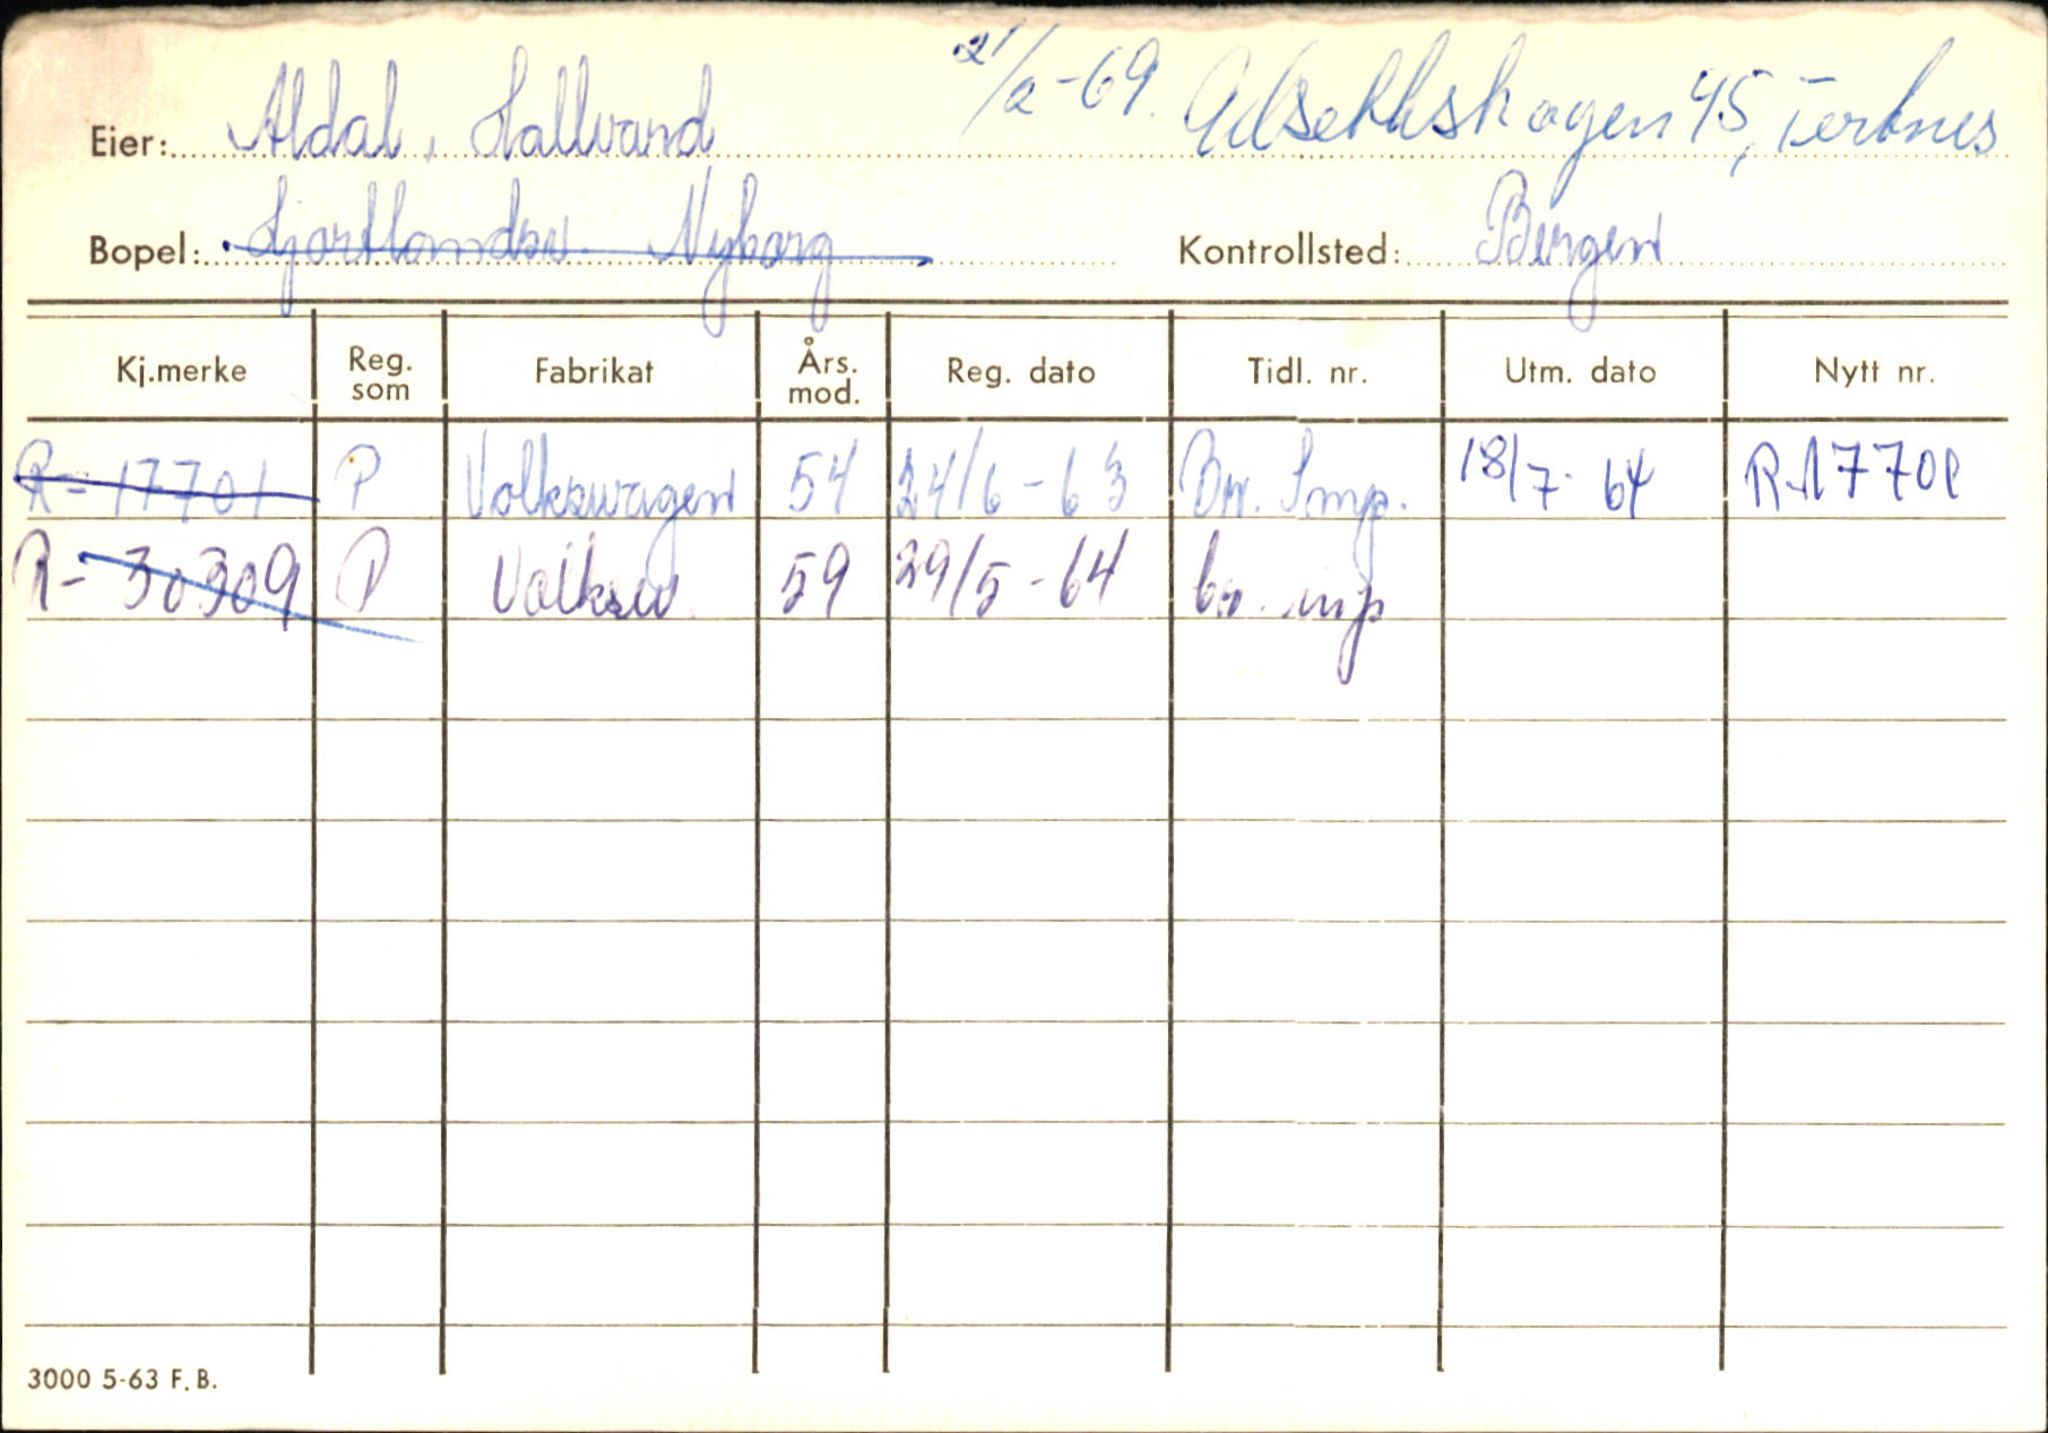 21/2-69. Adsekkshagen 45, Tertnes
Eier: Aldal, Hallvard
Bopel: Hjortlandsv. Nyborg Kontrollsted: Bergen
Kj.merke Reg. som Fabrikat Års. mod. Reg. dato Tidl. nr. Utm. dato Nytt nr.
R-17701 P Volkswagen 54 24/6-63 Br. Imp. 18/7-64 R-17701
R-30309 P Volksw. 59 29/5-64 br. imp
3000 5-63 F.B.